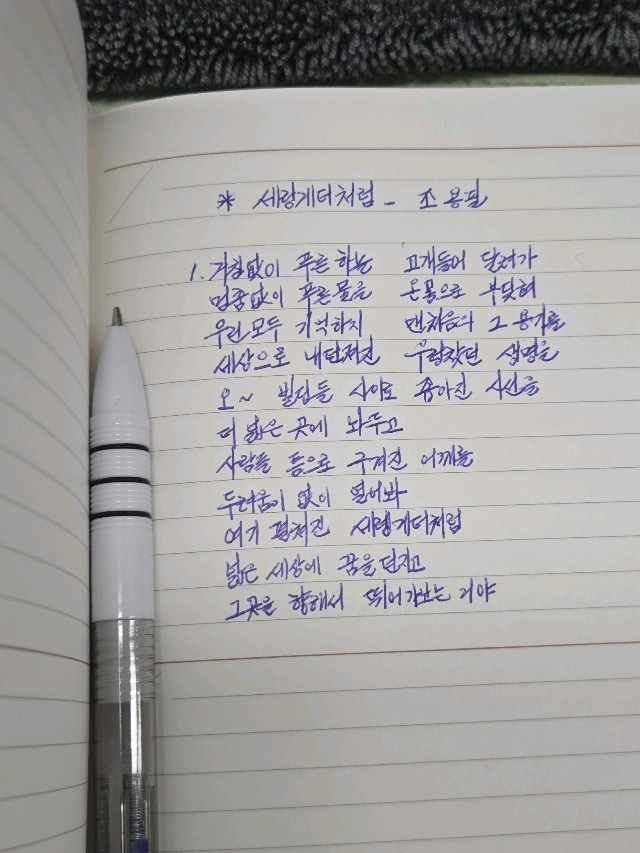 * 세렝게티처럼 - 조용필
1. 거침없이 푸른 하늘 고개들어 달려가
멈춤없이 푸른물을 온몸으로 부딪혀
우린 모두 기억하지 맨처음의 그 용기를
세상으로 내던져진 우렁찼던 생명을
오~ 빌딩들 사이로 좁아진 시선을
더 넓은 곳에 놔두고
사람들 등으로 구겨진 어깨를
두려움이 없이 열어봐
여기 펼쳐진 세렝게티처럼
넓은 세상에 꿈을 던지고
그곳을 향해서 뛰어가보는 거야